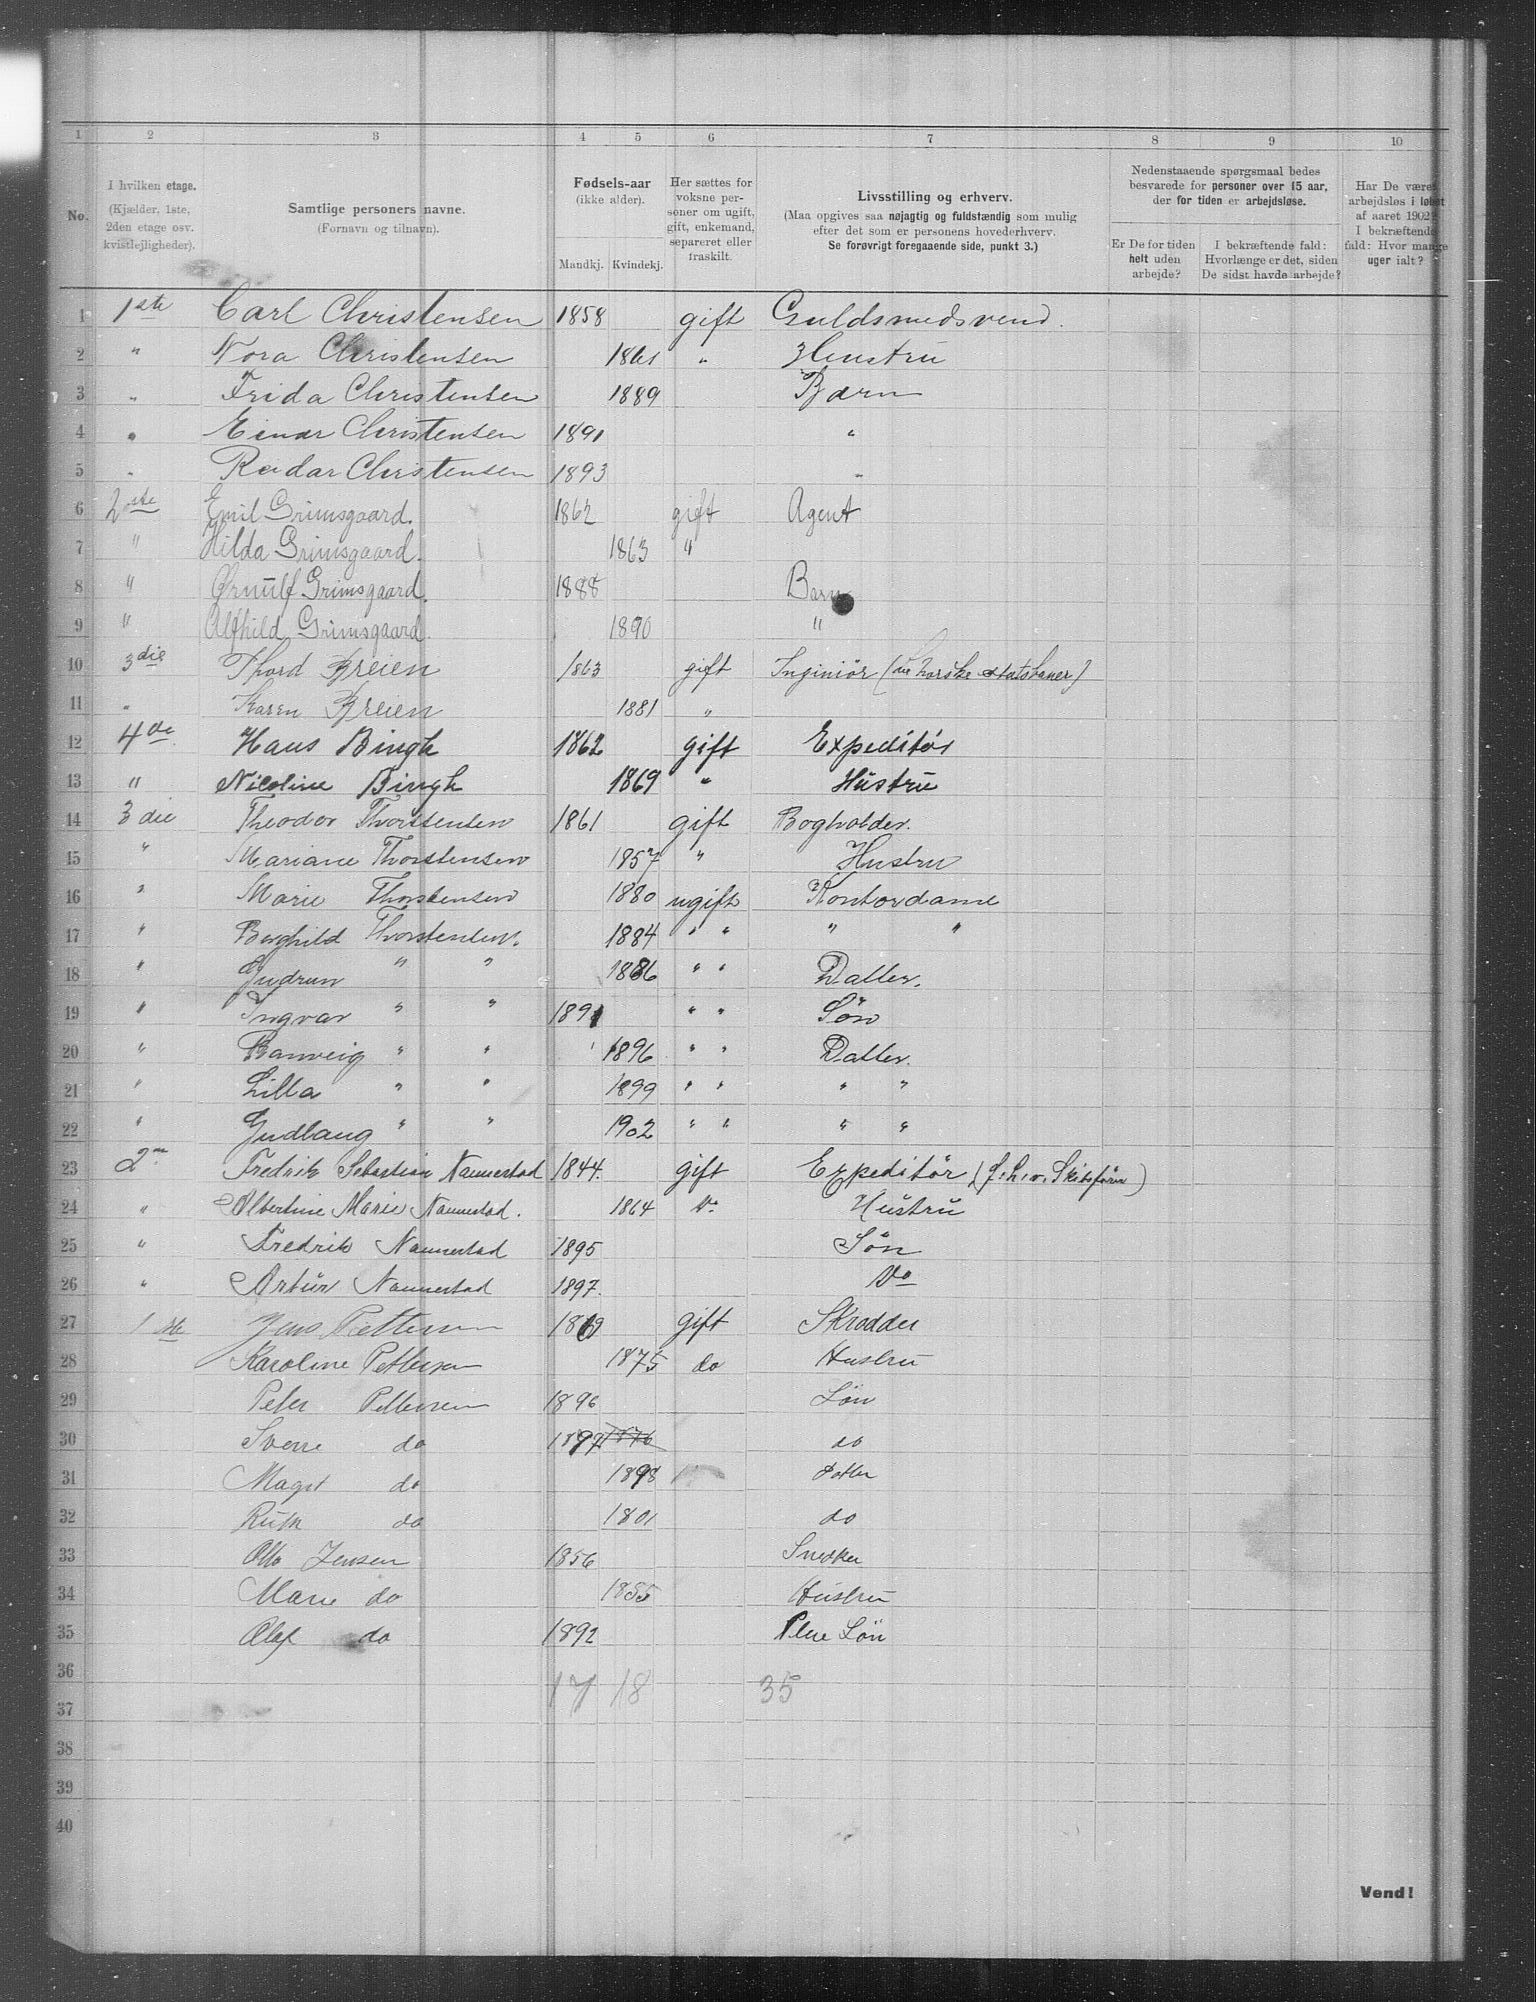 1 2 3 4 5 6 7 8 9 10
No.
I hvilken etage.
(Kjælder, 1ste,
2den etage osv.
kvistlejligheder).
Samtlige personers navne.
(Fornavn og tilnavn).
Fødsels-aar
(ikke alder).
Mandkj. Kvindekj.
Her sættes for
voksne per-
soner om ugift,
gift, enkemand,
separeret eller
fraskilt.
Livsstilling og erhverv.
(Maa opgives saa nøjagtig og fuldstændig som mulig
efter det som er personens hovederhverv.
Se forøvrigt foregaaende side, punkt 3.)
Nedenstaaende spørgsmaal bedes
besvarede for personer over 15 aar,
der for tiden er arbejdsløse.
Er De for tiden
helt uden
arbejde?
I bekræftende fald:
Hvorlænge er det, siden
De sidst havde arbejde?
Har De været
arbejdsløs i løbet
af aaret 1902?
I bekræftende
fald: Hvor mange
uger ialt?
1 1ste Carl Christensen 1858 gift Guldsmedsvend.
2 " Nora Christensen 1861 " Hustru
3 " Frida Christensen 1889 Barn
4 " Einar Christensen 1891 "
5 " Reidar Christensen 1893 "
6 2ste Emil Grimsgaard. 1862 gift Agent
7 " Hilda Grimsgaard. 1863 "
8 " Ørnulf Grimsgaard. 1888 Barn
9 " Alfhild Grimsgaard. 1890 "
10 3die Thord Breien 1863 gift Inginiör (de norske statsbaner)
11 " Karen Breien 1881 "
12 4de Hans Bingh 1862 gift Expeditör
13 " Nicoline Bingh 1869 " Hüstru
14 3die Theodor Thorstensen 1861 gift Bogholder.
15 " Mariane Thorstensen 1857 " Hustru
16 " Marie Thorstensen 1880 ugift Kontordame
17 " Borghild Thorstensen. 1884 " " " "
18 " Gudrun " " 1886 " " Datter.
19 " Ingvar " " 1891 " " Søn
20 " Ranveig " " 1896 " " Datter.
21 " Lilla " " 1899 " " " "
22 " Gudlaug " " 1902 " " " "
23 2en Fredrik Sebastian Nannestad 1844. gift Expeditör (f.h.v. Skibsförer)
24 " Albertine Marie Nannestad. 1864 Do Hüstrü
25 " Fredrik Nannestad 1895 Søn
26 " Artür Nannestad 1897. Do
27 1ste Jens Pettersen gift Skrædder
28 Karoline Pettersen 1875 do Hustrü
29 Peter Pettersen 1896 Sön
30 Sverre do 1897 1876 do
31 Magit do 1898 Dotter
32 Rüth do 1801 do
33 Otto Jensen 1856 Snedker
34 Marie do 1855 Hüstrü
35 Olaf do 1892 Pleie Sön
36
17 18 35
37
38
39
40
Vend!